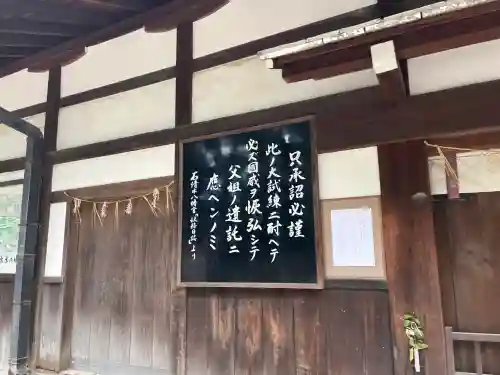 只承詔必謹
此ノ大試練ニ耐ヘテ
必ズ国威ヲ恢弘シテ
父祖ノ遺託ニ
應ヘンノミ
石清水八幡宮社務日誌より